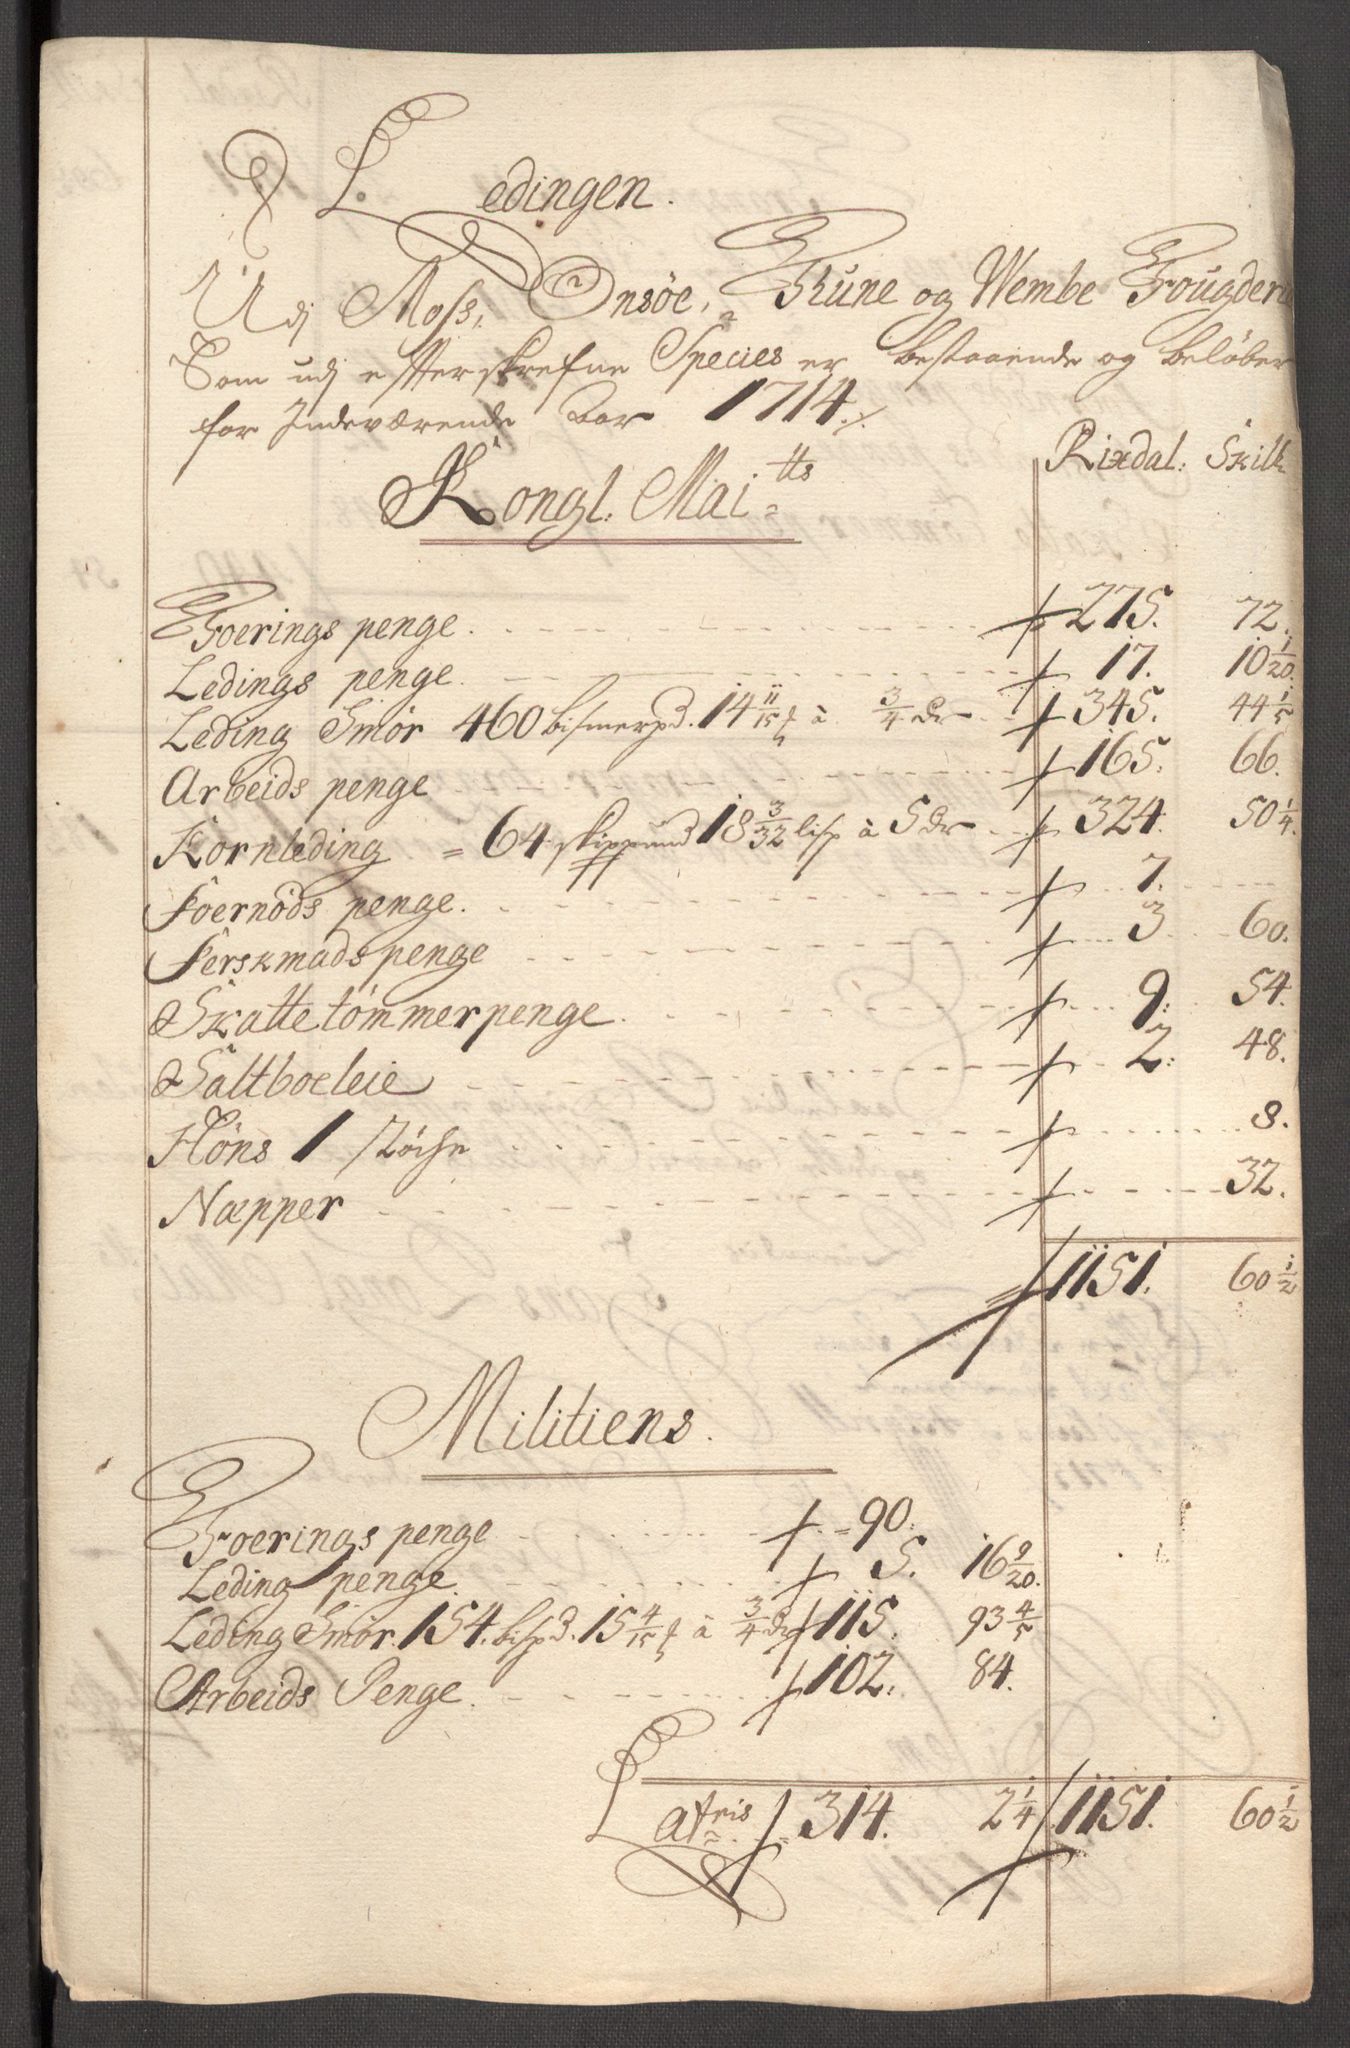 Ledingen.
Udj Moss, Onsöe, Thune og Wembe Fougderie
Som udj effterskrefne Species er bestaaende og beløber
for Indeværende Aar 1714./.
Rixdal: Skill:
Kongl. Mai=tts
Foerings penge. 275. 72.
Ledings penge. 17. 10 1/20.
Leding Smör 460 bismerpd. 14 11/15 ℔ à 3/4 dr 345. 44 1/5
Arbeids penge 165. 66.
Kornleding = 64 skippund 18 3/32 lisp à 5 dr 324. 50 1/4.
Foernöds penge. 7.
Ferskmads penge 3 60.
Skattetömmerpenge. 9. 54.
Saltboeleie 2. 48.
Höns 1 Stöche 8.
Næpper 32.
1151. 60 1/2
Militiens.
Foerings penge 90.
Leding penge. 5. 16 9/20.
Leding Smör. 154. bispd. 15 4/15 ℔ à 3/4 dr 115. 93 4/5
Arbeids Penge. 102. 84.
Latris 314. 2 1/4 1151. 60 1/2